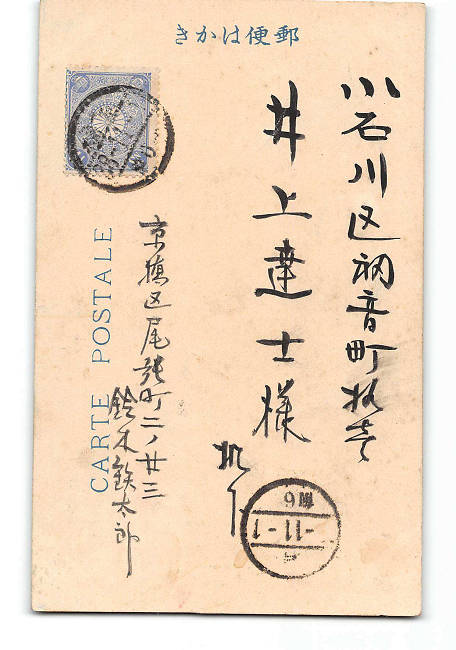 郵便はかき
小石川区初音町拾壱
井上達士様
机下
京橋区尾張町二ノ廿三
鈴木鉄太郎
CARTE POSTALE
-11-1